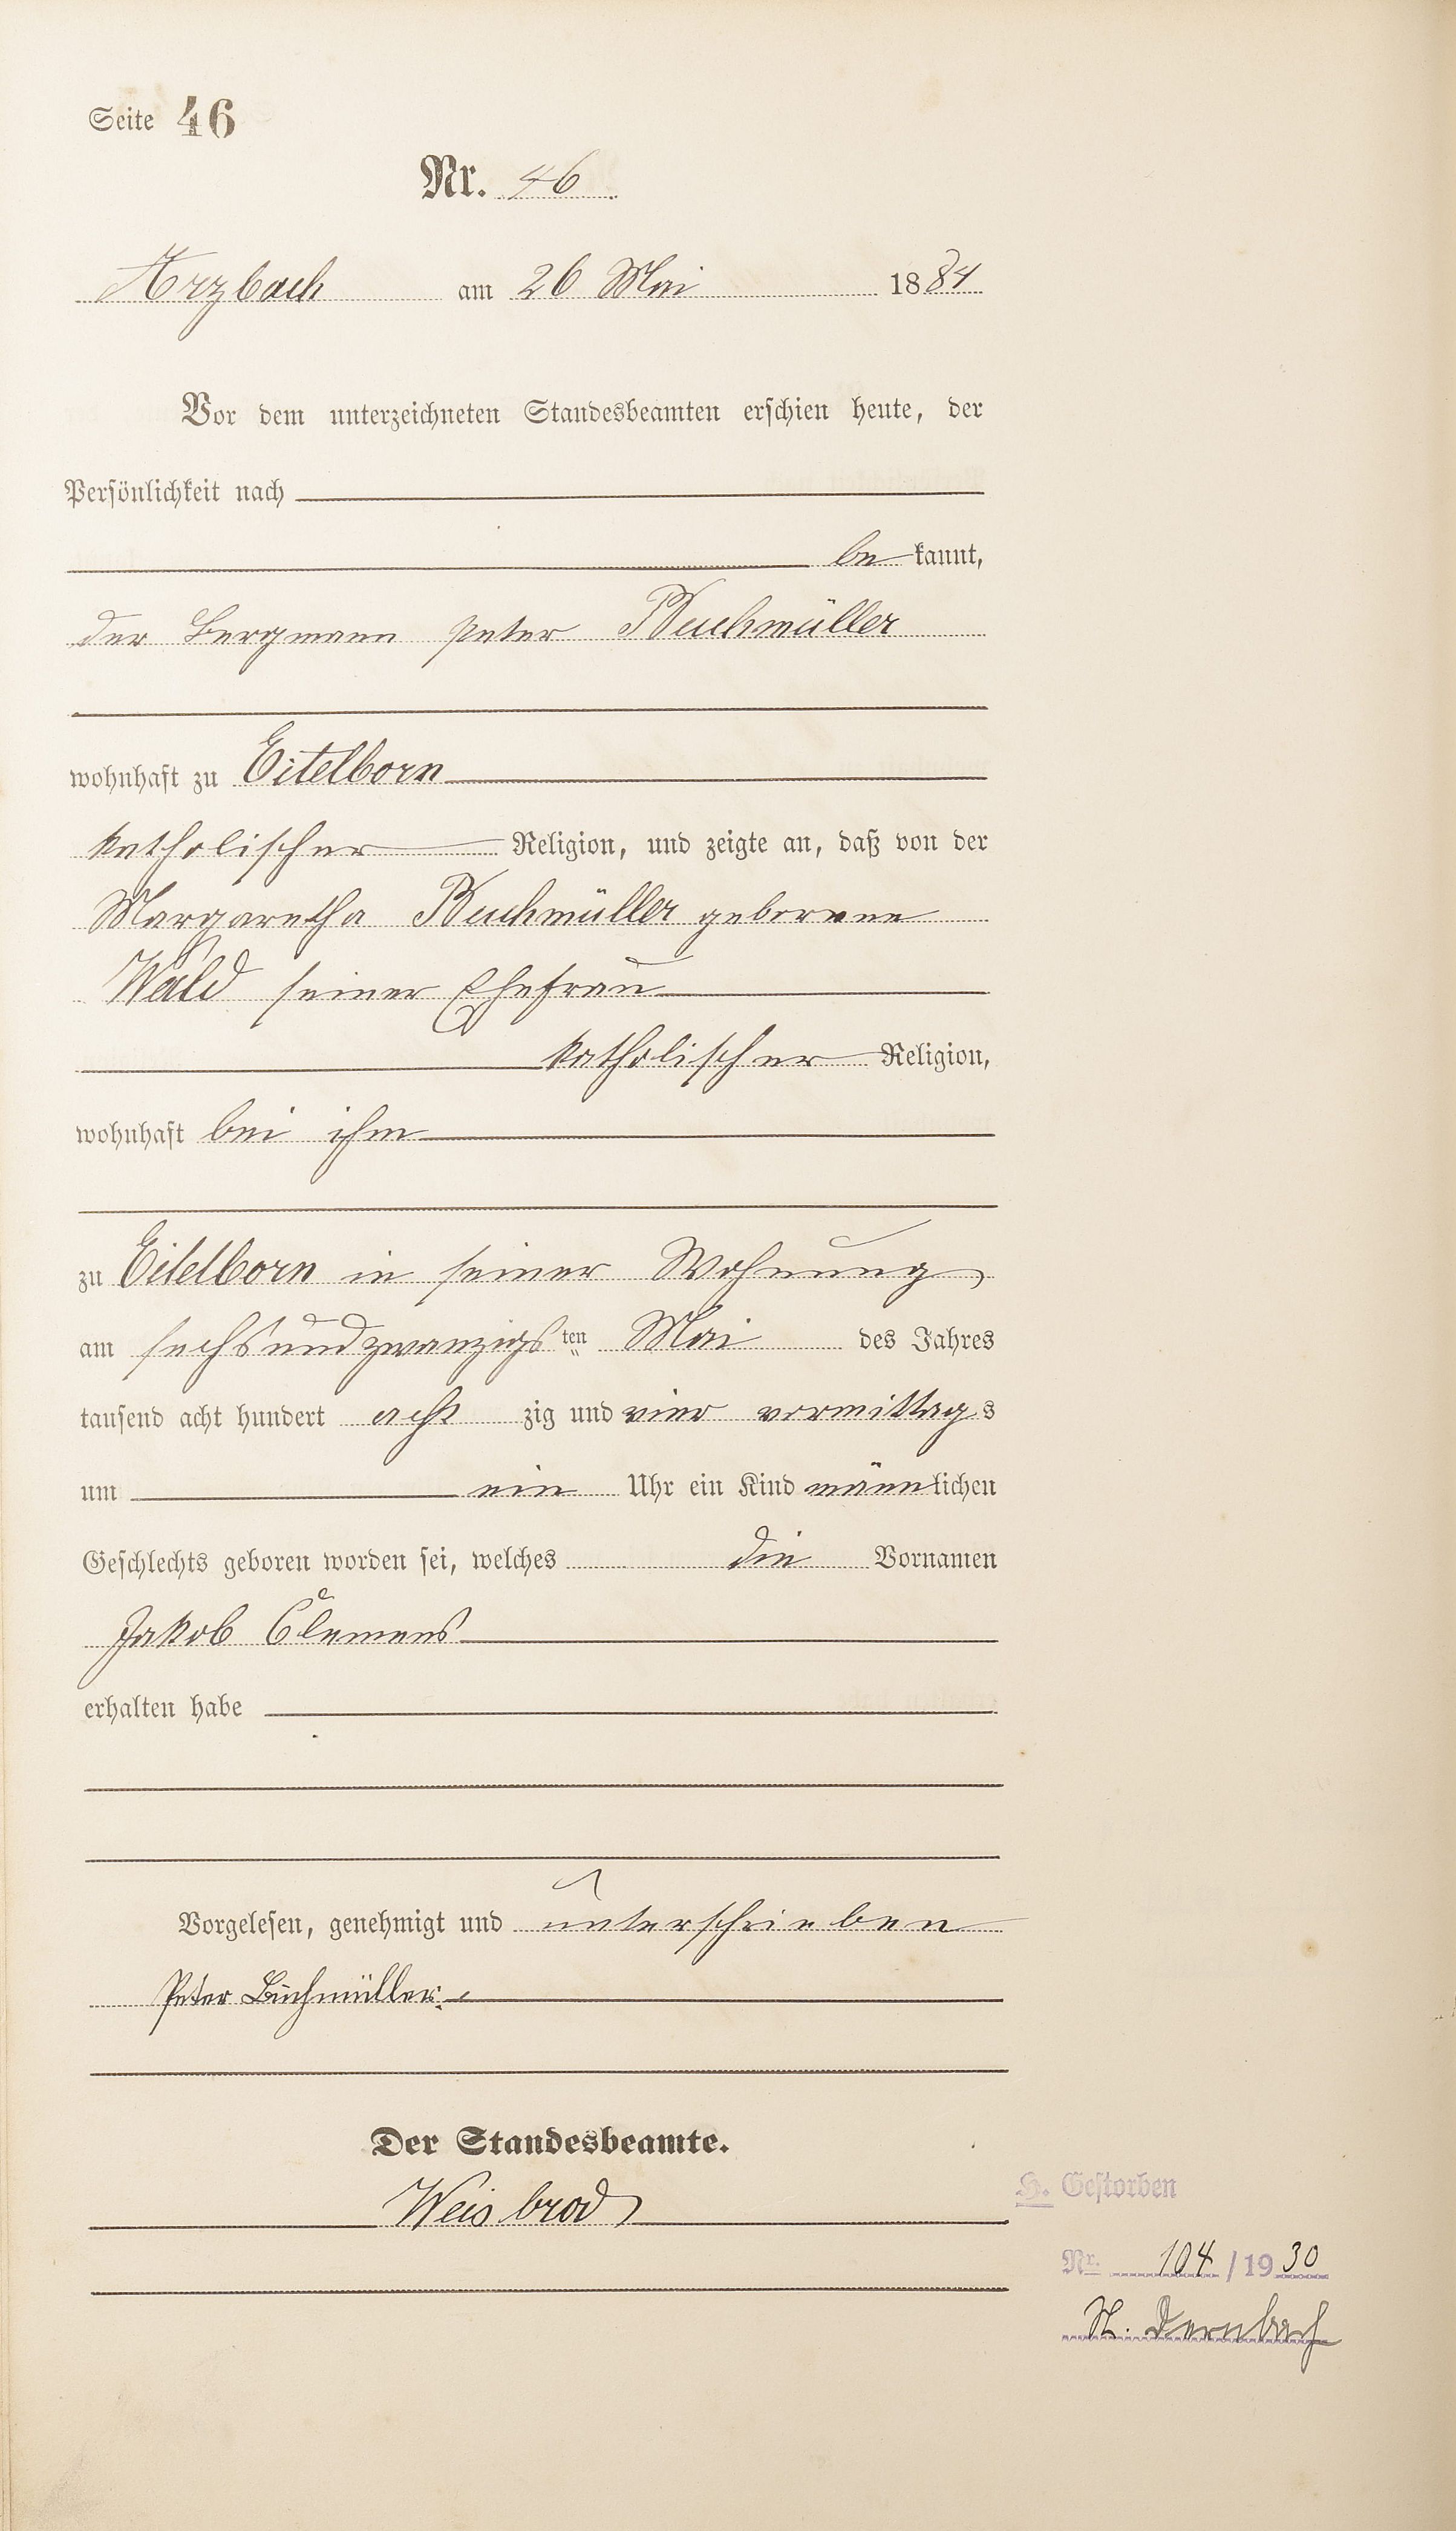 Seite 46
Nr. 46
Arzbach am 26 Mai 1884
Vor dem unterzeichneten Standesbeamten erschien heute, der
Persönlichkeit nach
be kannt,
der Bergmann Peter Buchmüller
wohnhaft zu Eitelborn
katholischer Religion, und zeigte an, daß von der
Margaretha Buchmüller geborene
Wald seiner Ehefrau
katholischer Religion,
wohnhaft bei ihm
zu Eitelborn in seiner Wohnung
am sechsundzwanzigsten Mai des Jahres
tausend acht hundert acht zig und vier vormittags
um ein Uhr ein Kind männlichen
Geschlechts geboren worden sei, welches die Vornamen
Jakob Clemens
erhalten habe
Vorgelesen, genehmigt und unterschrieben
Peter Buchmüller.
Der Standesbeamte.
Weisbrod
H. Gestorben
Nr. 104/1930
St. Dernbach